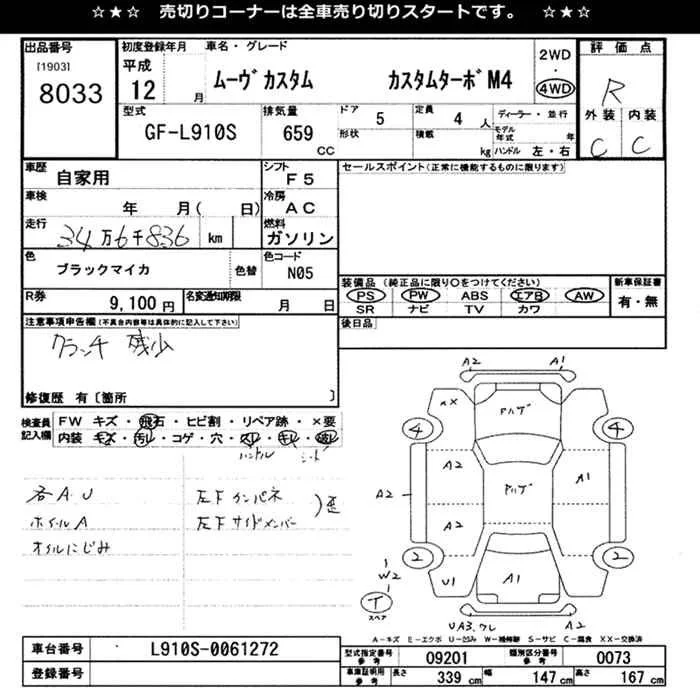 ☆★☆ 売切りコーナーは全車売り切りスタートです。 ☆★☆
出品番号
[1903]
8033
初度登録年月
平成
12 月
車名・グレード
ムーヴカスタム カスタムターボM4
2WD
・
4WD
評価点
R
外装 内装
C C
型式
GF-L910S
排気量
659 CC
ドア 5
形状
定員 4 人
積載 kg
ディーラー・並行
モデル年式 年
ハンドル 左・右
車歴
自家用
シフト
F5
車検
年 月( 日)
冷房
AC
走行
34万6千836 km
燃料
ガソリン
色
ブラックマイカ
色替
色コード
N05
R券
9,100円
名変通知期限 月 日
セールスポイント(正常に機能するものに限ります)
装備品(純正品に限り○をつけてください)
PS PW ABS エアB AW
SR ナビ TV カワ
新車保証書
有・無
後日品
注意事項申告欄(不具合内容等は具体的に記入して下さい)
クラッチ 残少
修復歴 有〔箇所 〕
検査員
記入欄
FW キズ・飛石・ヒビ割・リペア跡・×要
内装・キズ・汚レ・コゲ・穴・スレ・キレ・破レ
ハンドル シート
各A.U
ホイルA
オイルにじみ
左下インパネ
左下サイドメンバー
)歪
A2 A1
XX
アルゲ
4 4
A2
A1
A2
アルゲ
A2
2 2
W2
U1
A1
T
スペア
UA3.ワレ A2
A-キズ E-エクボ U-凹み W-補修跡 S-サビ C-腐食 XX-交換済
車台番号
L910S-0061272
登録番号
型式指定番号
参考
09201
類別区分番号
参考
0073
車庫証明用
参考
長さ 339 cm
幅 147 cm
高さ 167 cm